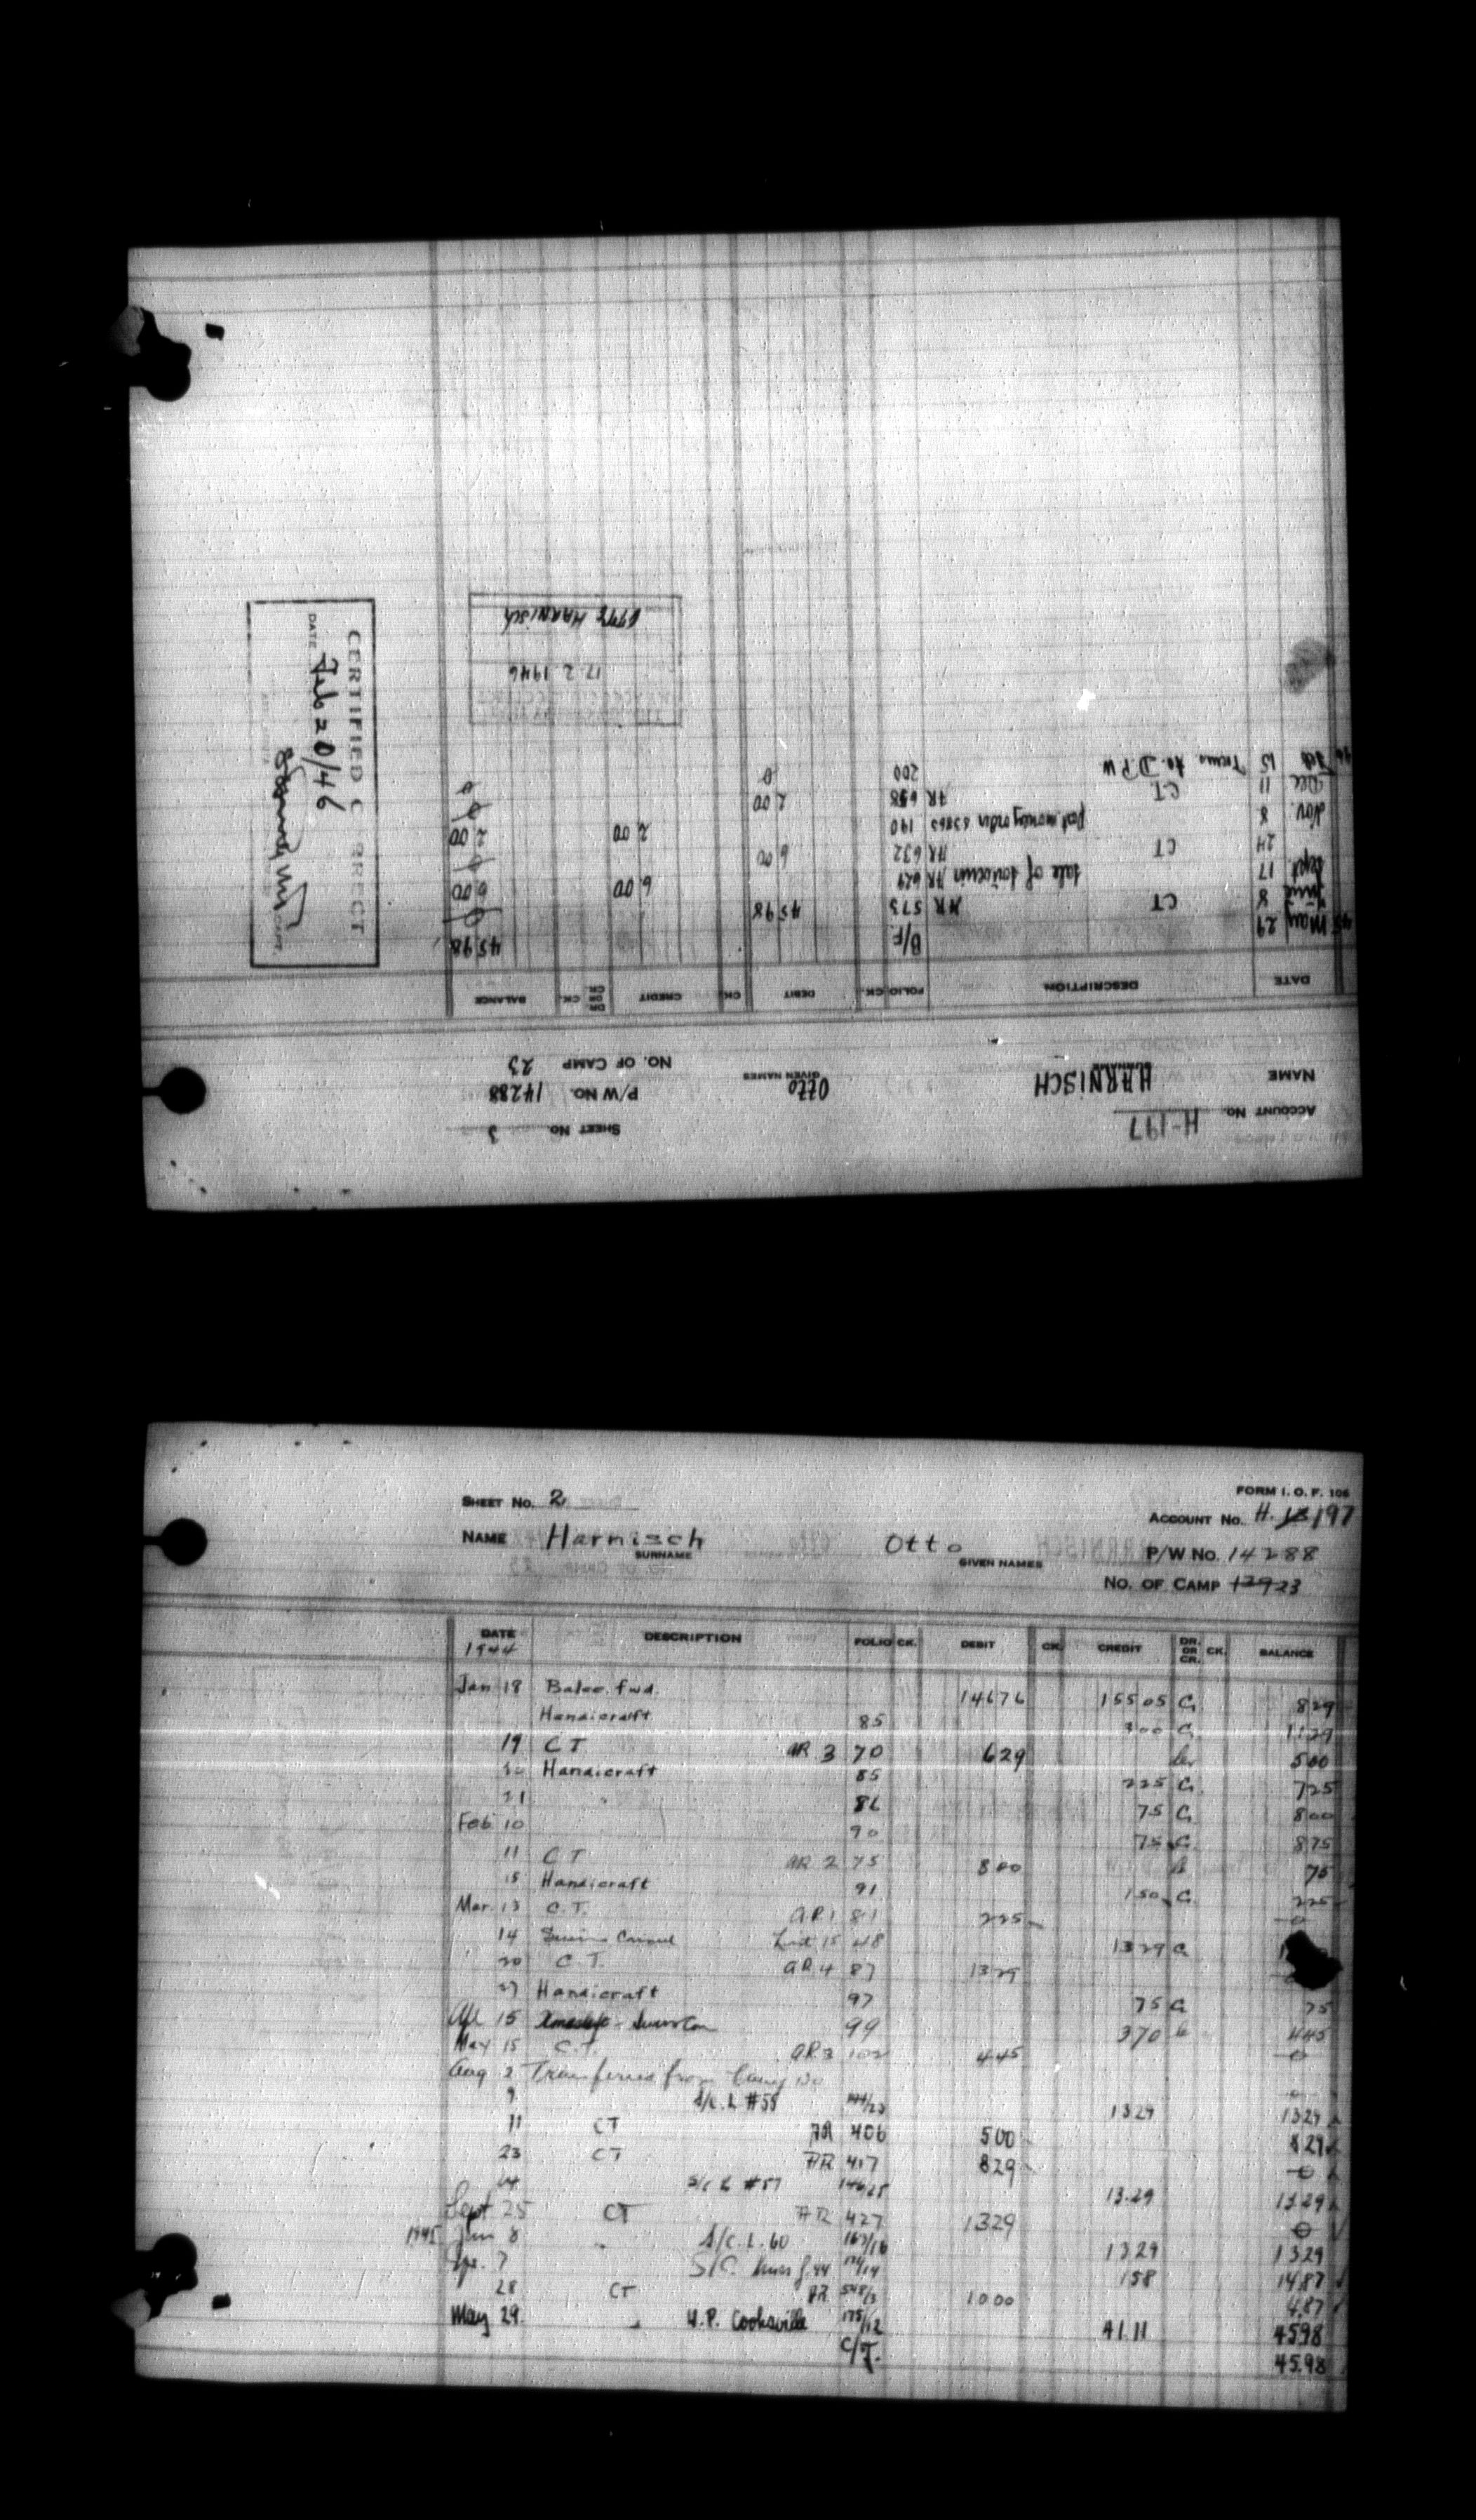 ACCOUNT NO. H-197
SHEET NO. 3
NAME HARNISCH Otto
SURNAME GIVEN NAMES
P/W NO. 14288
NO. OF CAMP 23
DATE DESCRIPTION FOLIO CK. DEBIT CK. CREDIT DR. OR CR. CK. BALANCE
45 May 29 B/F. 45 98
June 8 CT AR 573 45 98 0
Sept 17 Sale of AR 629 6 00 6 00
24 CT AR 632 6 00 0
Nov. 8 Post money order 53865 190 2 00 2 00
Dec 11 CT AR 658 2 00 0
46 Feb 15 Trans to. D P W 200 0 0
17. 2. 1946
HARNISCH
CERTIFIED CORRECT
DATE Feb 20/46
FORM I. O. F. 106
SHEET NO. 2
ACCOUNT NO. H. 13 197
NAME Harnisch Otto
SURNAME GIVEN NAMES
P/W NO. 14288
NO. OF CAMP 23
DATE DESCRIPTION FOLIO CK. DEBIT CK. CREDIT DR. OR CR. CK. BALANCE
1944
Jan 18 Balce. fwd. 146 76 155 05 C 8 29
Handicraft 85 3 00 C 11 29
19 CT AR 3 70 6 29 Cr 5 00
20 Handicraft 85 2 25 C 7 25
21 " 86 75 C 8 00
Feb 10 90 75 C 8 75
11 CT AR 2 75 8 00 75
15 Handicraft 91 1 50 C 2 25
Mar. 13 C.T. AR 1 81 2 25 0
14 Swiss Consul List 15 48 13 29 C
20 C.T. AR 4 87 13 29 0
27 Handicraft 97 75 C 75
Apl 15 Swiss Con 99 3 70 4 45
May 15 C.T. AR 3 102 4 45 0
Aug 2 Transferred from Camp 130 0
9 S/C. L #55 144/23 13 29 13 29
11 CT AR 406 5 00 8 29
23 CT AR 417 8 29 0
S/C L #57 146/25 13.29 13 29
Sept 25 CT AR 427 13 29 0
1945 Jan 8 S/C. L. 60 163/16 13 29 13 29
Apr. 7 S/C. 1 58 14 87
28 CT AR 548/3 10 00 4.87
May 29 W.P. Cooksville 175/12 41.11 45 98
C/F. 45.98